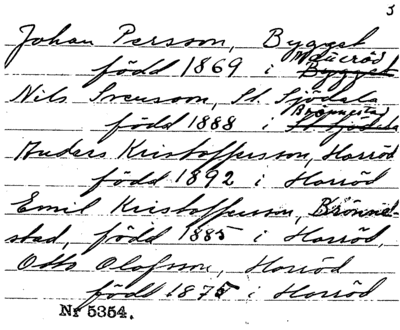 3
Johan Persson, Bygget
född 1869 i Maueröd
Nils Svensson, St. Sjödala
född 1888 i Brönnestad
Anders Kristoffersson, Horröd
född 1892 i Horröd
Emil Kristoffersson, Brönne-
stad, född 1885 i Horröd.
Otto Olofsson, Horröd
född 1875 i Horröd
Nr 5354.